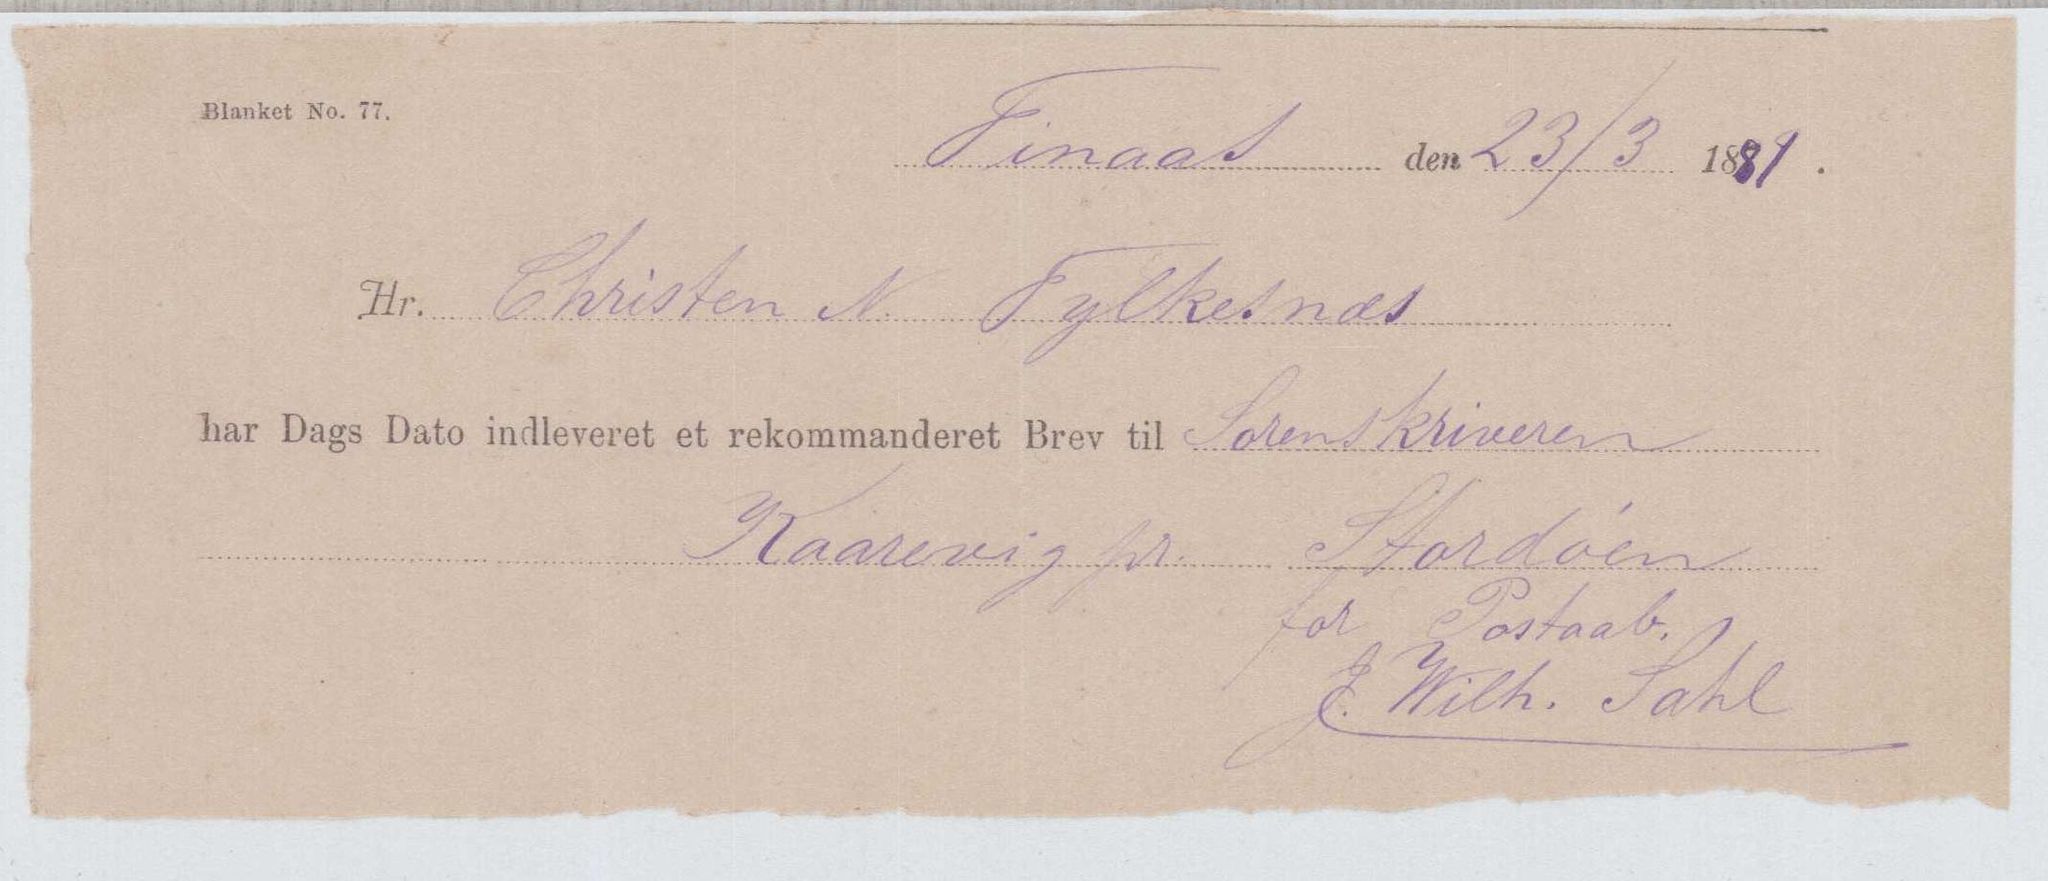 Blanket No. 77.
Finaas den 23/3 1881.
Hr. Christen N. Fylkesnæs
har Dags Dato indleveret et rekommanderet Brev til Sorenskriveren
Kaarevig pr. Stordöen
for Postaab.
J. Wilh. Sahl